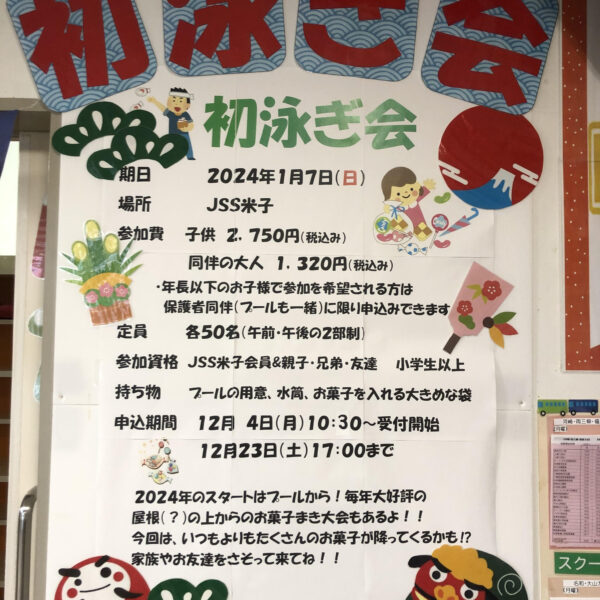 初泳ぎ会
初泳ぎ会
期日 2024年1月7日(日)
場所 JSS米子
参加費 子供 2,750円(税込み)
同伴の大人 1,320円(税込み)
・年長以下のお子様で参加を希望される方は
保護者同伴(プールも一緒)に限り申込みできます
定員 各50名(午前・午後の2部制)
参加資格 JSS米子会員&親子・兄弟・友達 小学生以上
持ち物 プールの用意、水筒、お菓子を入れる大きめな袋
申込期間 12月 4日(月)10:30〜受付開始
12月23日(土)17:00まで
2024年のスタートはプールから!毎年大好評の
屋根(?)の上からのお菓子まき大会もあるよ!!
今回は、いつもよりもたくさんのお菓子が降ってくるかも!?
家族やお友達をさそって来てね!!
【月曜】
スクー
【月曜】